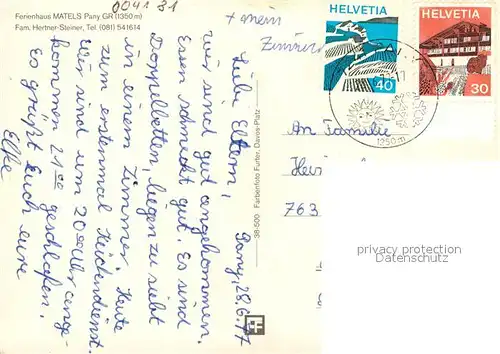 0041 31
Ferienhaus MATELS Pany GR (1350 m)
Fam. Hertner-Steiner, Tel (081) 541614
+ mein
Zimmer
HELVETIA
40
HELVETIA
30
1250 m
Pany, 28.6.77
Liebe Eltern,
wir sind gut angekommen.
Essen schmeckt gut. Es sind
Doppelbetten, liegen zu siebt
in einem Zimmer. Heute
zum erstenmal Küchendienst.
Wir sind um 20 00 Uhr ange-
kommen 21 00 geschlafen.
Es grüßt Euch eure
Elke
38-500 Farbenfoto Furter, Davos-Platz
An Familie
763
privacy protection
Datenschutz